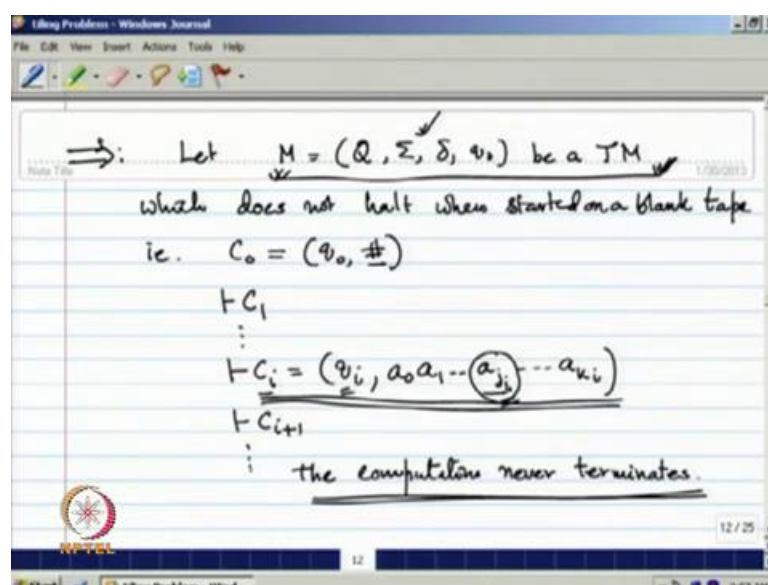 Tiling Problem - Windows Journal
File Edit View Insert Actions Tools Help
⟹: Let M = (Q, Σ, δ, q₀) be a TM
Note Title 1/30/2013
which does not halt when started on a blank tape
ie. C₀ = (q₀, #)
⊢ C₁
⋮
⊢ Cᵢ = (qᵢ, a₀a₁--a_{jᵢ}--a_{kᵢ})
⊢ Cᵢ₊₁
⋮ the computation never terminates.
NPTEL
12 / 25
12